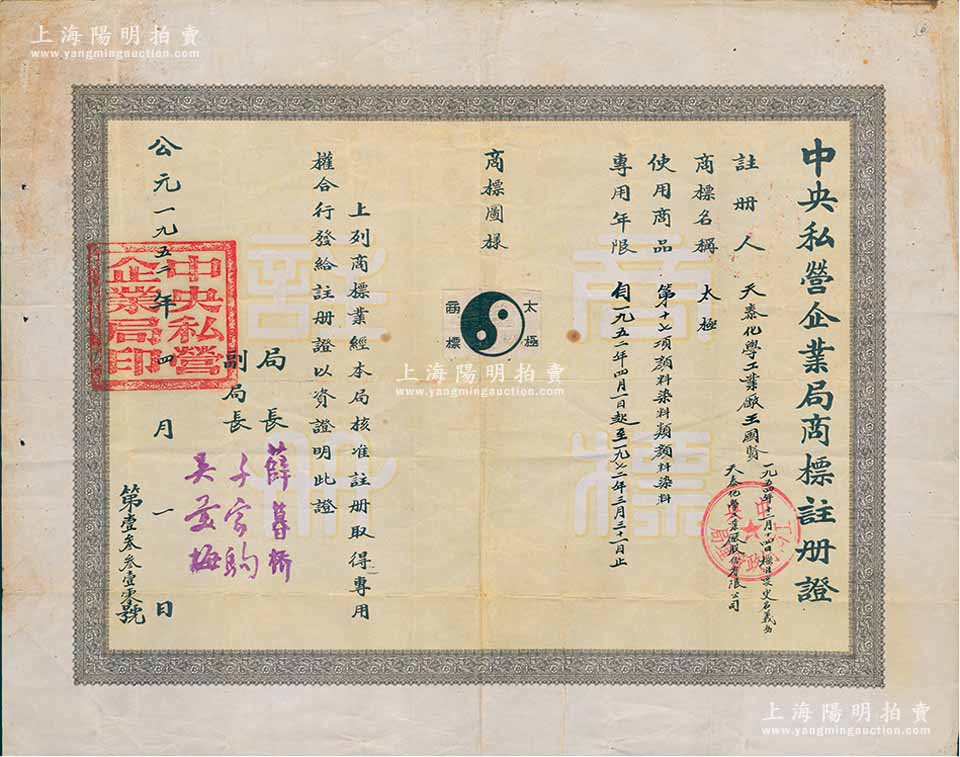 中央私營企業局商標註册證
註册人 天泰化學工業廠王國賢
一九五四年十二月十四日核准變更名義為
天泰化學工業廠股份有限公司
商標名稱 太極
使用商品 第十七項顏料染料類顏料染料
專用年限 自一九五二年四月一日起至一九七二年三月三十一日止
商標圖樣
太極
商標
上列商標業經本局核准註册取得專用
權合行發給註册證以資證明此證
局長 薛暮橋
副局長 千家駒
吳羹梅
公元一九五二年四月一日
中央私營
企業局印
第壹叁叁壹零號
商標
註册
上海陽明拍賣
www.yangmingauction.com
上海陽明拍賣
www.yangmingauction.com
上海陽明拍賣
www.yangmingauction.com